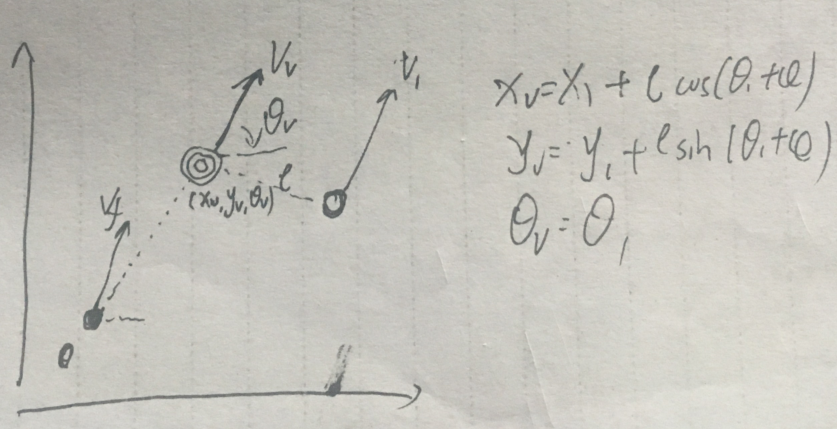 V_v
V_1
θ_v
l
(x_v, y_v, θ_v)
V_f
x_v = x_1 + l cos(θ_1+φ)
y_v = y_1 + l sin(θ_1+φ)
θ_v = θ_1